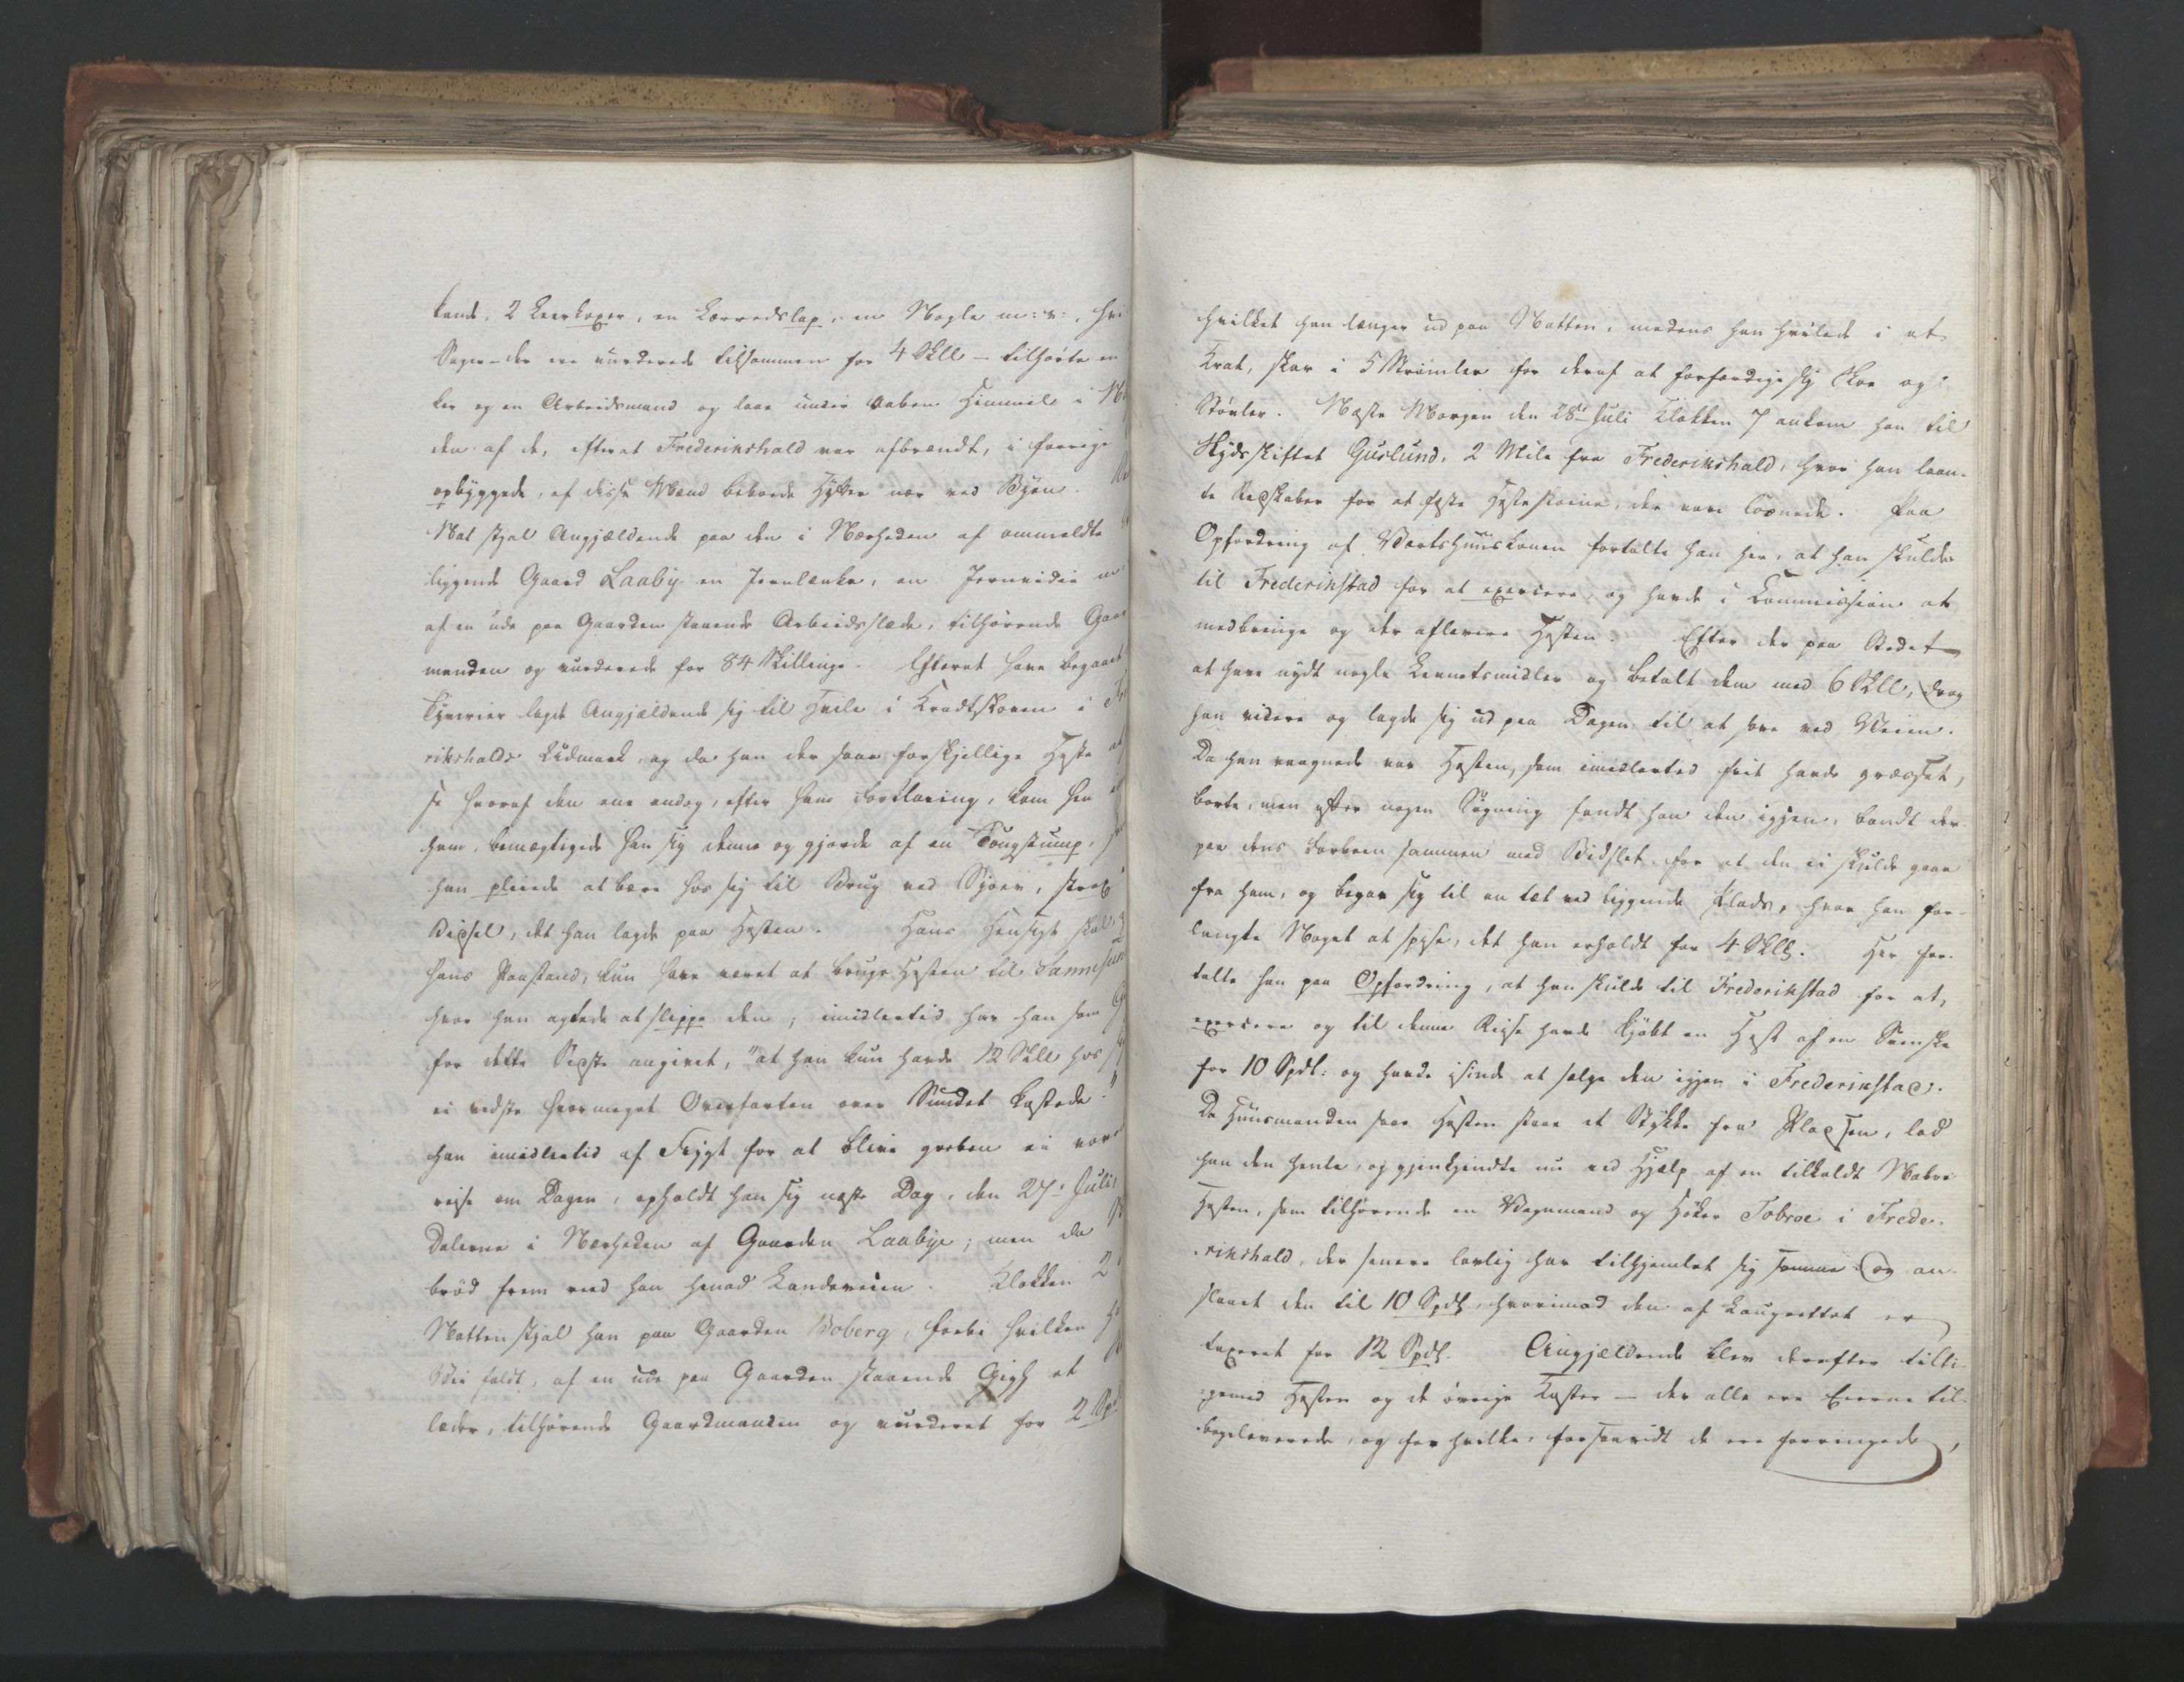 kande, 2 Leerkopper, en Korvedslap, en Nøgle m: v:, hvi
Sager – der ere vurderede tilsammen for 4 Skll – tilhørte en
ker og en Arbeidsmand og laae under aaben Himmel i
den af de, efterat Frederikshald var afbrændt, i forrige
opbyggede, af disse Mænd beboede Hytter nær ved Byen.
Nat stjal Angjældende paa den i Nærheden af ommeldte
liggende Gaard Laaby en Jernlænke, en Jernvidie
af en ude paa Gaarden staaende Arbeidsslæde, tilhørende Gaar
manden og vurderede for 84 Skillinge. Efterat have begaaet
Tyverier lagde Angjældende sig til Hvile i Krattskoven i
rikshalds Udmark, og da han der saae forskjellige Heste
se hvoraf den ene endog, efter hans Forklaring, kom hen
ham, bemægtigede han sig denne og gjorde af en Tougstump,
han pleiede at bære hos sig til Brug ved Sjøen, strax
Bidsel, det han lagde paa Hesten. Hans Hensigt skal,
hans Paastand, kun have været at bruge Hesten til Sannesun
hvor han agtede at slippe den; imidlertid har han som
for dette Sidste angivet, "at han kun havde 12 Skll hos
ei vidste hvormeget Overfarten over Sundet kostede."
han imidlertid af Frygt for at blive greben ei vove
reise om Dagen, opholdt han sig næste Dag, den 27de Juli,
Dalerne i Nærheden af Gaarden Laabye; men da
brød frem reed han henad Landeveien. Klokken 2
Natten stjal han paa Gaarden Boberg, forbi hvilken
Vei faldt, af en ude paa Gaarden staaende Gigh et
læder, tilhørende Gaardmanden og vurderet for 2 Spd
hvilket han længer ud paa Natten, medens han hvilede i et
Krat, skar i 5 Strimler for deraf at forfærdige sig Skoe og
Støvler. Næste Morgen den 28de Juli Klokken 7 ankom han til
Skydsskiftet Guslund, 2 Mile fra Frederikshald, hvor han laan-
te Redskaber for at fæste Hesteskoene, der vare løsnede. Paa
Opfordring af Vertshuuskonen fortalte han her, at han skulde
til Frederikstad for at exercere, og havde i Kommission at
medbringe og der aflevere Hesten. Efter der paa Stedet
at have nydt nogle Levnetsmidler og betalt dem med 6 Skll, drog
han videre og lagde sig ud paa Dagen til at sove ved Veien.
Da han vaagnede var Hesten, som imidlertid frit havde græsset,
borte, men efter nogen Søgning fandt han den igjen, bandt der-
paa dens Forbeen sammen med Bidslet for at den ei skulde gaae
fra ham, og begav sig til en tæt ved liggende Plads, hvor han for-
langte Noget at spise, det han erholdt for 4 Skll. Her for-
talte han paa Opfordring, at han skulde til Frederikstad for at
exercere og til denne Reise havde kjøbt en Hest af en Svenske
for 10 Spdl: og havde isinde at sælge den igjen i Frederikstad.
Da Huusmanden saae Hesten staae et Stykke fra Pladsen, lod
han den hente, og gjenkjendte nu ved Hjelp af en tilkaldt Nabo
Hesten, som tilhørende en Vognmand og Høker Tobroe i Frede-
rikshald, der senere lovlig har tilhjemlet sig samme og an-
slaaet den til 10 Spdl, hvorimod den af Laugrettet er
taxeret for 12 Spdl. Angjældende blev derefter tilli-
gemed Hesten og de øvrige Koster – der alle ere Eierne til-
bageleverede, og for hvilke, forsaavidt de ere forringede,